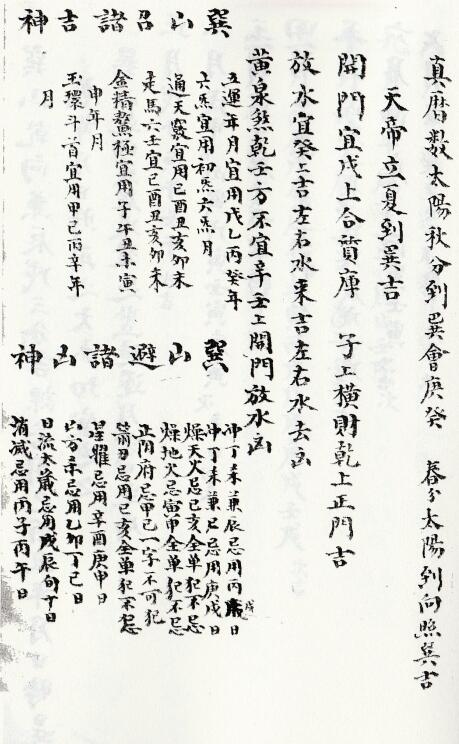 真曆数太陽秋分到巽會庚癸 春分太陽到向照巽吉
天帝立夏到巽吉
開門宜戌上合質庫 子上橫財乾上正門吉
放水宜癸上吉左右水来吉左右水去凶
黄泉煞乾壬方不宜辛壬上開門放水凶
巽山吕諸吉神
五運年月宜用戊乙丙癸年
六炁宜用初炁六炁月
通天竅宜用巳酉丑亥卯未
走馬六壬宜巳酉丑亥卯未
金精鰲極宜用子午丑未寅
申年月
玉環斗首宜用甲己丙辛年
月
巽山避諸凶神
坤丁未兼辰忌用丙日
坤丁未兼尸忌用庚戌日
燥天火忌巳亥全单犯不忌
燥地火忌寅甲全单犯不忌
正阴府忌甲己一字不可犯
箭刃忌用巳亥全单犯不忌
星曜忌用辛酉庚申日
山方杀忌用乙卯丁巳日
日流太歲忌用戊辰旬十日
消滅忌用丙子丙午日